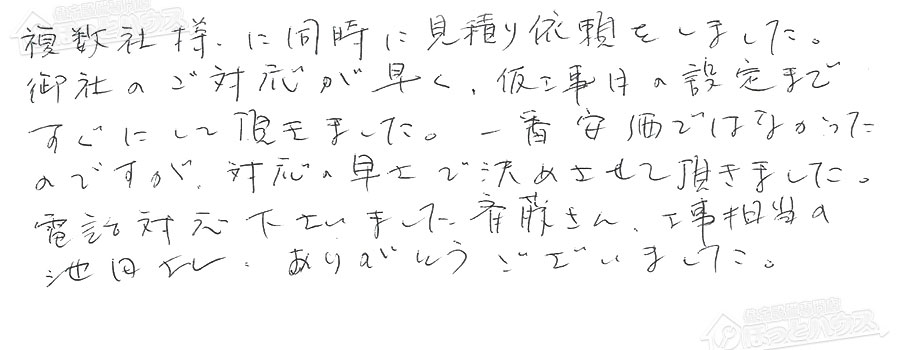 複数社様に同時に見積り依頼をしました。
御社のご対応が早く、仮工事日の設定まで
すぐにして頂きました。一番安価ではなかった
のですが、対応の早さで決めさせて頂きました。
電話対応下さいました斉藤さん、工事担当の
池田さん、ありがとうございました。
ほっとハウス